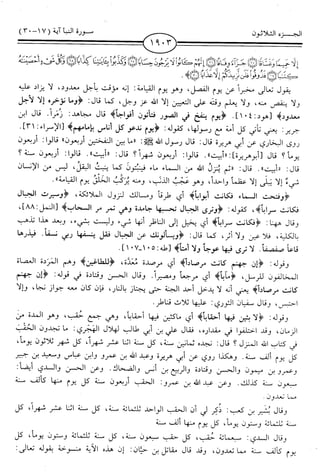 الجزء الثلاثون
١٩٠٣
سورة النبأ آية (١٧-٣٠)
إِلَّا حَمِيمًا وَغَسَّاقًا جَزَاءً وِفَاقًا إِنَّهُمْ كَانُوا لَا يَرْجُونَ حِسَابًا وَكَذَّبُوا بِآيَاتِنَا كِذَّابًا وَكُلَّ شَيْءٍ أَحْصَيْنَاهُ
كِتَابًا فَذُوقُوا فَلَنْ نَزِيدَكُمْ إِلَّا عَذَابًا
يقول تعالى مخبراً عن يوم الفصل، وهو يوم القيامة: إنه مؤقت بأجل معدود، لا يزاد عليه
ولا ينقص منه، ولا يعلم وقته على التعيين إلا الله عز وجل، كما قال: ﴿وما نؤخره إلا لأجل
معدود﴾ [هود: ١٠٤]. ﴿يوم ينفخ في الصور فتأتون أفواجاً﴾ قال مجاهد: زمراً. قال ابن
جرير: يعني تأتي كل أمة مع رسولها، كقوله: ﴿يوم ندعو كل أناس بإمامهم﴾ [الإسراء: ٣١].
روى البخاري عن أبي هريرة قال: قال رسول الله ﷺ: «ما بين النفختين أربعون» قالوا: أربعون
يوماً؟ قال [أبو هريرة]: «أبيت». قالوا: أربعون شهراً؟ قال: «أبيت». قالوا: أربعون سنة؟
قال: «أبيت». قال: «ثم يُنزل الله من السماء ماء فينبتون كما ينبت البقل، ليس من الإنسان
شيءٌ إلا يبلى إلا عظماً واحداً، وهو عَجْبُ الذنب، ومنه يُركّبُ الخلقُ يوم القيامة».
﴿وفتحت السماء فكانت أبواباً﴾ أي طرقاً ومسالك لنزول الملائكة، ﴿وسيرت الجبال
فكانت سراباً﴾، كقوله: ﴿وترى الجبال تحسبها جامدة وهي تمر مر السحاب﴾ [النمل: ٨٨]،
وقال ههنا: ﴿فكانت سراباً﴾ أي يخيل إلى الناظر أنها شيء وليست بشيء، وبعد هذا تذهب
بالكلية، فلا عين ولا أثر، كما قال: ﴿ويسألونك عن الجبال فقل ينسفها ربي نسفاً. فيذرها
قاعاً صفصفاً. لا ترى فيها عوجاً ولا أمتاً﴾ [طه: ١٠٥-١٠٧].
وقوله: ﴿إن جهنم كانت مرصاداً﴾ أي مرصدة مُعدّة، ﴿للطاغين﴾ وهم المَرَدة العصاة
المخالفون للرسل، ﴿مآباً﴾ أي مرجعاً ومصيراً. وقال الحسن وقتادة في قوله: ﴿إن جهنم
كانت مرصاداً﴾ يعني أنه لا يدخل أحد الجنة حتى يجتاز بالنار، فإن كان معه جواز نجا، وإلا
احتبس. وقال سفيان الثوري: عليها ثلاث قناطر.
وقوله: ﴿لابثين فيها أحقاباً﴾ أي ماكثين فيها أحقاباً، وهي جمع حُقب، وهو المدة من
الزمان، وقد اختلفوا في مقداره، فقال علي بن أبي طالب لهلال الهَجَري: ما تجدون الحُقبَ
في كتاب الله المنزل؟ قال: نجده ثمانين سنة، كل سنة اثنا عشر شهراً، كل شهر ثلاثون يوماً،
كل يوم ألف سنة. وهكذا روي عن أبي هريرة وعبد الله بن عمرو وابن عباس وسعيد بن جبير
وعمرو بن ميمون والحسن وقتادة والربيع بن أنس والضحاك. وعن الحسن والسدي أيضاً:
سبعون سنة كذلك. وعن عبد الله بن عمرو: الحقب أربعون سنة كل يوم منها كألف سنة
مما تعدون.
وقال بشير بن كعب: ذُكر لي أن الحقب الواحد ثلثمائة سنة، كل سنة اثنا عشر شهراً، كل
سنة ثلثمائة وستون يوماً، كل يوم منها ألف سنة
وقال السدي: سبعمائة حُقب، كل حقب سبعون سنة، كل سنة ثلثمائة وستون يوماً، كل
يوم كألف سنة مما تعدون. وقد قال مقاتل بن حيّان: إن هذه الآية منسوخة بقوله تعالى: